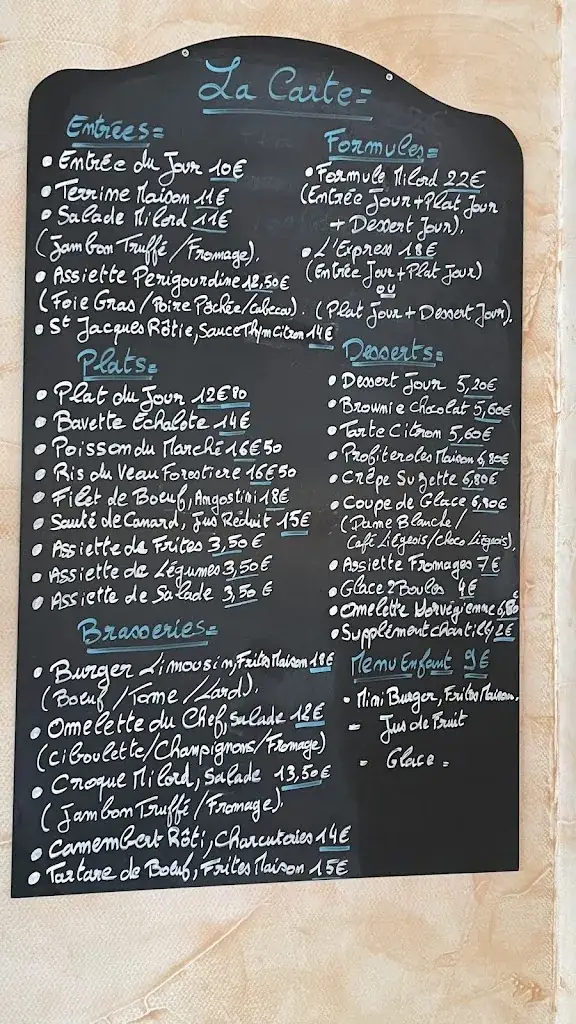 La Carte=
Entrées=
• Entrée du Jour 10€
• Terrine Maison 11€
• Salade Milord 11€
(Jambon Truffé/Fromage).
• Assiette Perigourdine 12,50€
(Foie Gras/Poire Pochée/Cabecou).
• St Jacques Rôtie, Sauce Thym Citron 14€
Plats=
• Plat du Jour 12€80
• Bavette Echalote 14€
• Poisson du Marché 16€50
• Ris du Veau Forestiere 16€50
• Filet de Boeuf, Angostini 18€
• Sauté de Canard, Jus Réduit 15€
• Assiette de Frites 3,50€
• Assiette de Légumes 3,50€
• Assiette de Salade 3,50€
Brasseries=
• Burger Limousin, Frites Maison 18€
(Boeuf/Tome/Lard).
• Omelette du Chef, Salade 12€
(Ciboulette/Champignons/Fromage)
• Croque Milord, Salade 13,50€
(Jambon Truffé/Fromage).
• Camembert Rôti, Charcuteries 14€
• Tartare de Boeuf, Frites Maison 15€
Formules=
• Formule Milord 22€
(Entrée Jour+Plat Jour
+ Dessert Jour).
• L'Express 18€
(Entrée Jour+Plat Jour)
ou
(Plat Jour+Dessert Jour).
Desserts=
• Dessert Jour 5,20€
• Brownie Chocolat 5,60€
• Tarte Citron 5,60€
• Profiteroles Maison 6,80€
• Crêpe Suzette 6,80€
• Coupe de Glace 6,90€
(Dame Blanche/
Café Liégeois/choco Liégeois).
• Assiette Fromages 7€
• Glace 2 Boules 4€
• Omelette Norvégienne 6,80€
• Supplément chantilly 2€
Menu Enfant 9€
- Mini Burger, Frites Maison.
- Jus de Fruit
- Glace =